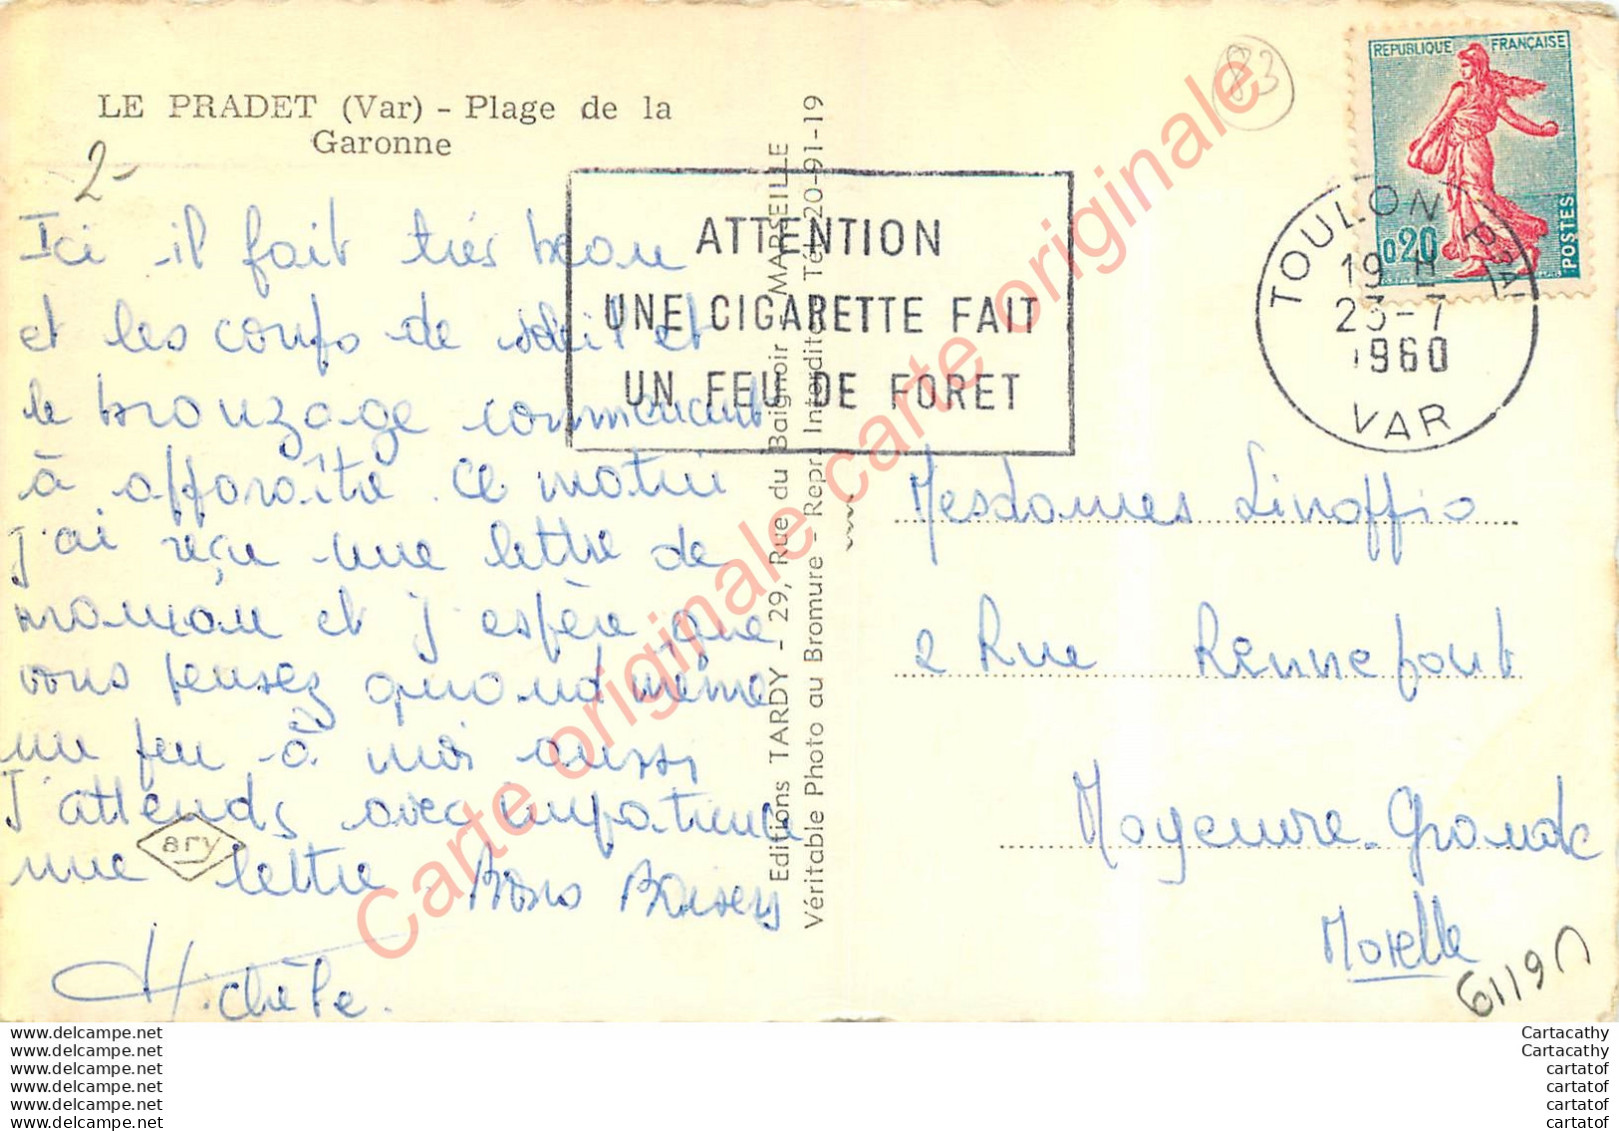 LE PRADET (Var) - Plage de la
Garonne
2-
83
REPUBLIQUE FRANÇAISE
0,20
POSTES
TOULON
19 H
23-7
1960
VAR
ATTENTION
UNE CIGARETTE FAIT
UN FEU DE FORET
Ici il fait très beau
et les coups de soleil et
le bronzage commencent
à apparaître. Ce matin
j'ai reçu une lettre de
maman et j'espère que
vous pensez quand même
un peu à moi aussi
J'attends avec impatience
une lettre. Bons Baisers
Michèle.
ary
Editions TARDY - 29, Rue du Baignoir - MARSEILLE
Véritable Photo au Bromure - Repr. Interdite Tél. 20-91-19
Mesdames Linoffio
2 Rue Rennefont
Moyeuvre-Grande
Moselle
61190
Carte originale carte originale
www.delcampe.net
www.delcampe.net
www.delcampe.net
www.delcampe.net
www.delcampe.net
www.delcampe.net
Cartacathy
Cartacathy
cartatof
cartatof
cartatof
cartatof